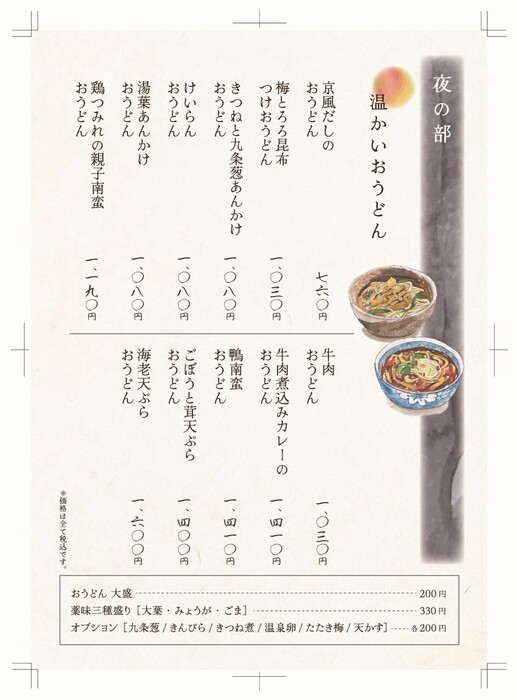 夜の部
温かいおうどん
京風だしの
おうどん
七六〇円
梅とろろ昆布
つけおうどん
一、〇三〇円
きつねと九条葱あんかけ
おうどん
一、〇八〇円
けいらん
おうどん
一、〇八〇円
湯葉あんかけ
おうどん
一、〇八〇円
鶏つみれの親子南蛮
おうどん
一、一九〇円
牛肉
おうどん
一、〇三〇円
牛肉煮込みカレーの
おうどん
一、四一〇円
鴨南蛮
おうどん
一、四一〇円
ごぼうと茸天ぷら
おうどん
一、四〇〇円
海老天ぷら
おうどん
一、六〇〇円
※価格は全て税込です。
おうどん 大盛 200円
薬味三種盛り［大葉・みょうが・ごま］ 330円
オプション［九条葱 / きんぴら / きつね煮 / 温泉卵 / たたき梅 / 天かす］ 各200円